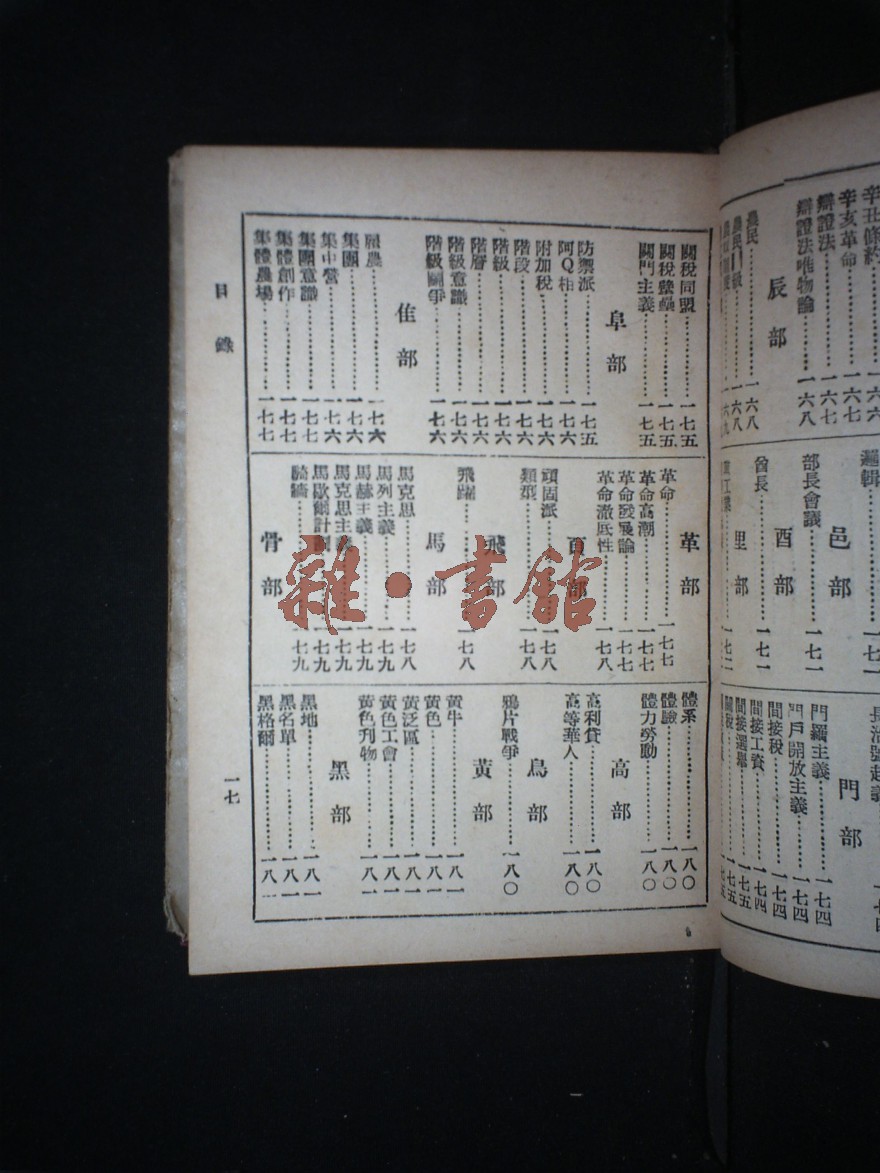 辛丑條約
辛亥革命……一六七
辯證法……一六七
辯證法唯物論……一六八
辰部
農民……一六八
邏輯
邑部
部長會議……一七一
酉部
酋長……一七一
里部
門部
門羅主義……一七四
門戶開放主義……一七四
間接稅……一七四
間接工資……一七四
間接選舉……一七五
關稅……一七五
關稅同盟……一七五
關稅壁壘……一七五
關門主義……一七五
阜部
防禦派……一七五
阿Q相……一七六
附加稅……一七六
階段……一七六
階級……一七六
階層……一七六
階級意識……一七六
階級鬭爭……一七六
隹部
雇農……一七六
集團……一七六
集中營……一七六
集團意識……一七七
集體創作……一七七
集體農場……一七七
革部
革命……一七七
革命高潮……一七七
革命發展論……一七七
革命澈底性……一七八
頁部
頑固派……一七八
類型……一七八
飛部
飛躍……一七八
馬部
馬克思……一七八
馬列主義……一七九
馬赫主義……一七九
馬克思主義……一七九
馬歇爾計劃……一七九
騎牆……一七九
骨部
體系……一八〇
體驗……一八〇
體力勞動……一八〇
高部
高利貸……一八〇
高等華人……一八〇
鳥部
鴉片戰爭……一八〇
黃部
黃牛……一八一
黃色……一八一
黃泛區……一八一
黃色工會……一八一
黃色刋物……一八一
黑部
黑地……一八一
黑名單……一八一
黑格爾……一八
目錄
一七
雜·書舘